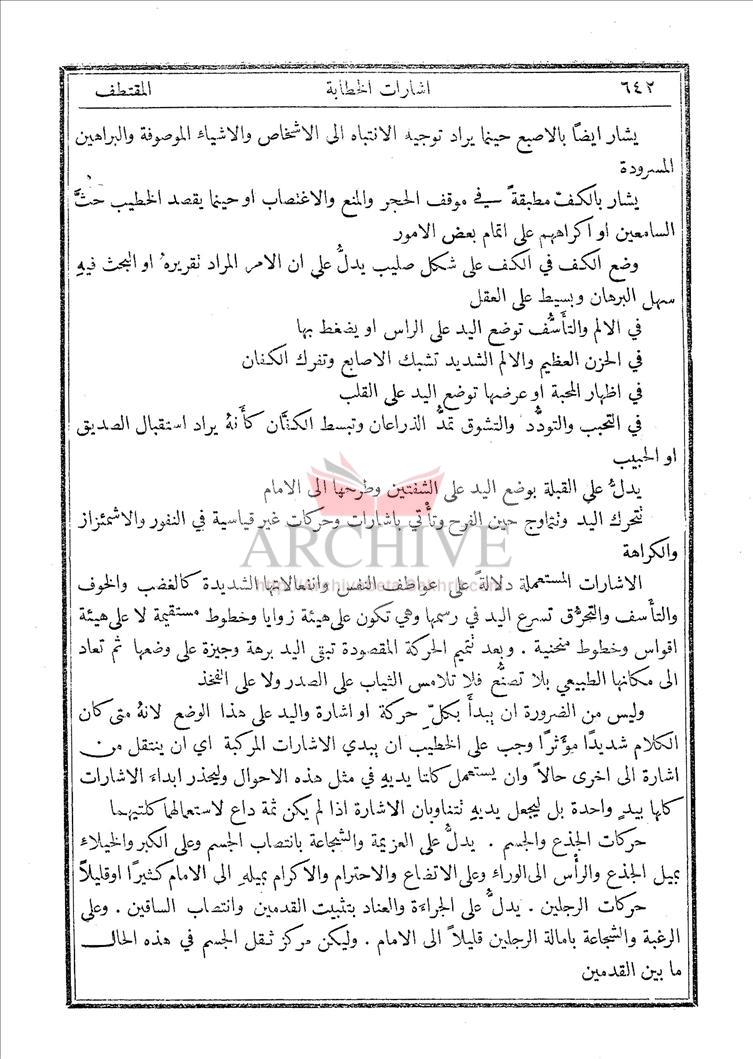 ٦٤٢ اشارات الخطابة المقتطف
يشار ايضاً بالاصبع حينما يراد توجيه الانتباه الى الاشخاص والاشياء الموصوفة والبراهين
المسرودة
يشار بالكف مطبقةً في موقف الحجر والمنع والاغتصاب او حينما يقصد الخطيب حثَّ
السامعين او اكراههم على اتمام بعض الامور
وضع الكف في الكف على شكل صليب يدلُّ على ان الامر المراد تقريرهُ او البحث فيهِ
سهل البرهان وبسيط على العقل
في الالم والتأسُّف توضع اليد على الراس او يضغط بها
في الحزن العظيم والالم الشديد تشبك الاصابع وتفرك الكفان
في اظهار المحبة او عرضها توضع اليد على القلب
في التحبب والتودُّد والتشوق تمدُّ الذراعان وتبسط الكفَّان كأَنهُ يراد استقبال الصديق
او الحبيب
يدلُّ على القبلة بوضع اليد على الشفتين وطرحها الى الامام
تتحرك اليد وتتماوج حين الفرح وتأتي باشارات وحركات غير قياسية في النفور والاشمئزاز
والكراهة
ARCHIVE
الاشارات المستعملة دلالةً على عواطف النفس وانفعالاتها الشديدة كالغضب والخوف
والتأسف والتحرُّق تسرع اليد في رسمها وهي تكون على هيئة زوايا وخطوط مستقيمة لا على هيئة
اقواس وخطوط منحنية . وبعد تتميم الحركة المقصودة تبقى اليد برهة وجيزة على وضعها ثم تعاد
الى مكانها الطبيعي بلا تصنُّع فلا تلامس الثياب على الصدر ولا على الفخذ
وليس من الضرورة ان يبدأ بكلّ حركة او اشارة واليد على هذا الوضع لانهُ متى كان
الكلام شديدًا مؤثرًا وجب على الخطيب ان يبدي الاشارات المركبة اي ان ينتقل من
اشارة الى اخرى حالاً وان يستعمل كلتا يديهِ في مثل هذه الاحوال وليحذر ابداءَ الاشارات
كلها بيدٍ واحدة بل ليجعل يديهِ تتناوبان الاشارة اذا لم يكن ثمة داعٍ لاستعمالها كلتيهما
حركات الجذع والجسم . يدلُّ على العزيمة والشجاعة بانتصاب الجسم وعلى الكبر والخيلاء
بميل الجذع والرأس الى الوراء وعلى الاتضاع والاحترام والاكرام بميلهِ الى الامام كثيرًا او قليلاً
حركات الرجلين . يدلُّ على الجراءة والعناد بتثبيت القدمين وانتصاب الساقين . وعلى
الرغبة والشجاعة بامالة الرجلين قليلاً الى الامام . وليكن مركز ثقل الجسم في هذه الحال
ما بين القدمين